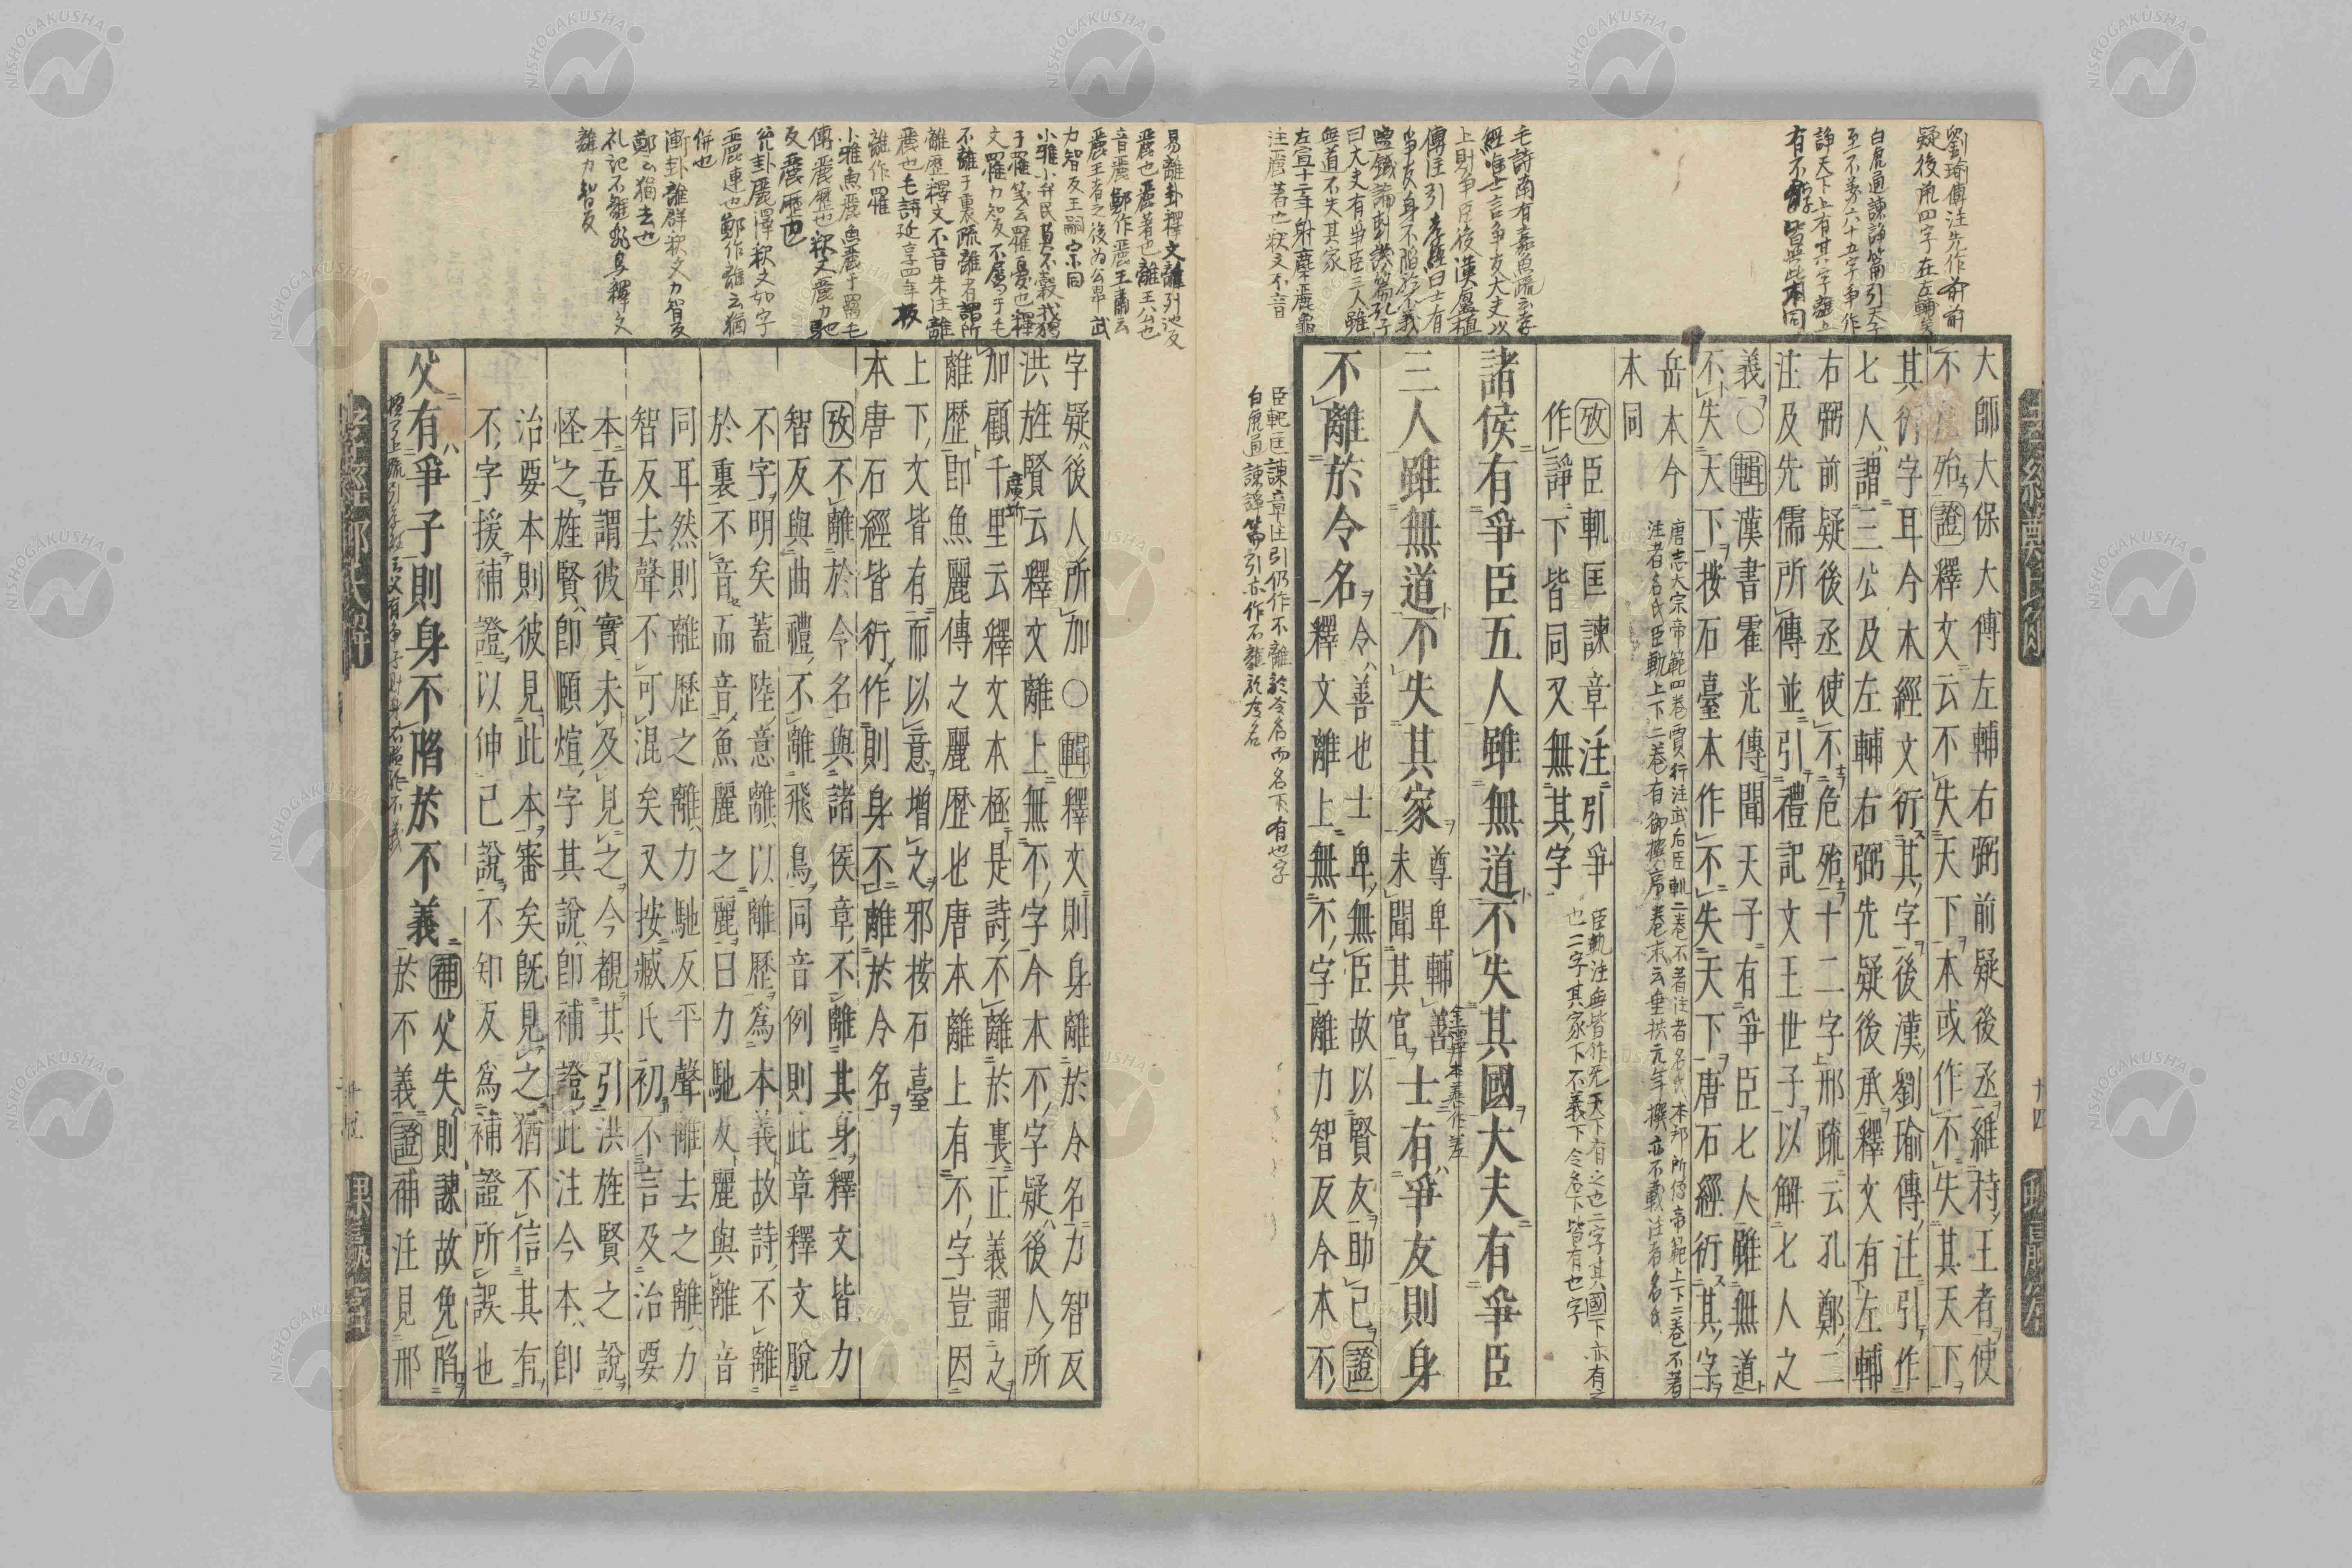 大師大保大傅左輔右弼前疑後丞維持王者使
不危殆證釋文云不失天下本或作不失其天下
其衍字耳今本經文衍其字後漢劉瑜傳注引作
七人謂三公及左輔右弼先疑後承釋文有左輔
右弼前疑後丞使不危殆十二字邢疏云孔鄭二
注及先儒所傳並引禮記文王世子以解七人之
義〇輯漢書霍光傳聞天子有爭臣七人雖無道
不失天下按石臺本作不失天下唐石經衍其字
岳本今
本同
唐志大宗帝範四卷賈行注武后臣軌二卷不著注者名氏本邦所傳帝範上下二卷不著
注者名氏臣軌上下二卷有御撰序卷末云垂拱元年撰亦不載注者名氏
攷臣軌匡諫章注引爭
作諍下皆同又無其字
臣軌注無皆作无天下有之也二字其國下亦有之
也二字其家下不義下令名下皆有也字
諸侯有爭臣五人雖無道不失其國大夫有爭臣
三人雖無道不失其家
尊卑輔善
未聞其官
士有爭友則身
不離於令名
令善也士卑無臣故以賢友助己證
釋文離上無不字離力智反今本不
臣軌匡諫章注引仍作不離於令名而名下有也字
白虎通諫諍篇引亦作不離於令名
劉瑜傳注先作前
疑後承四字在左輔矣
白虎通諫諍篇引天子
至不義六十五字爭作
諍天下上有其字
有不字皆與此本同
毛詩南有嘉魚疏云孝
經唯士言爭友大夫以
上則爭臣後漢
傳注引孝經曰士有
爭友身不陷於不義
鹽鐵論刺議篇孔子
曰大夫有爭臣三人雖
無道不失其家
左宣十二年射麋麗龜
注麗著也釋文不音
字疑後人所加〇輯釋文則身離於令名力智反
洪旌賢云釋文離上無不字今本不字疑後人所
加顧千里云釋文本極是詩不離於裏正義謂之
離歷即魚麗傳之麗歷也唐本離上有不字豈因
上下文皆有而以意增之邪按石臺
本唐石經皆衍作則身不離於令名
攷不離於令名與諸侯章不離其身釋文皆力
智反與曲禮不離飛鳥同音例則此章釋文脫
不字明矣蓋陸意離以離歷為本義故詩不離
於裏不音而音魚麗之麗曰力馳反麗與離音
同耳然則離歷之離力馳反平聲離去之離力
智反去聲不可混矣又按臧氏初不言及治要
本吾謂彼實未及見之今覩其引洪旌賢之說
怪之旌賢即頤煊字其說即補證此注今本即
治要本則彼見此本審矣旣見之猶不信其有
不字援補證以伸己說不知反為補證所誤也
父有爭子則身不陷於不義
補父失則諫故免陷
於不義證補注見邢
易離卦釋文離列池反
麗也麗著也離王公也
音麗鄭作麗王肅云
麗王者之後為公
力智反王嗣宗同
小雅小弁民莫不穀我獨
于罹箋云罹憂也釋
文罹力知反不屬于毛
不離于裏疏離者謂所
離歷釋文不音朱注離
麗也毛詩延享四年板
離作罹
小雅魚麗魚麗于罶毛
傳麗歷也釋文麗力馳
反麗歷也
兌卦麗澤釋文如字
麗連也鄭作離云猶
併也
漸卦離群釋文力智反
鄭云猶去也
礼記不離飛鳥釋文
離力智反